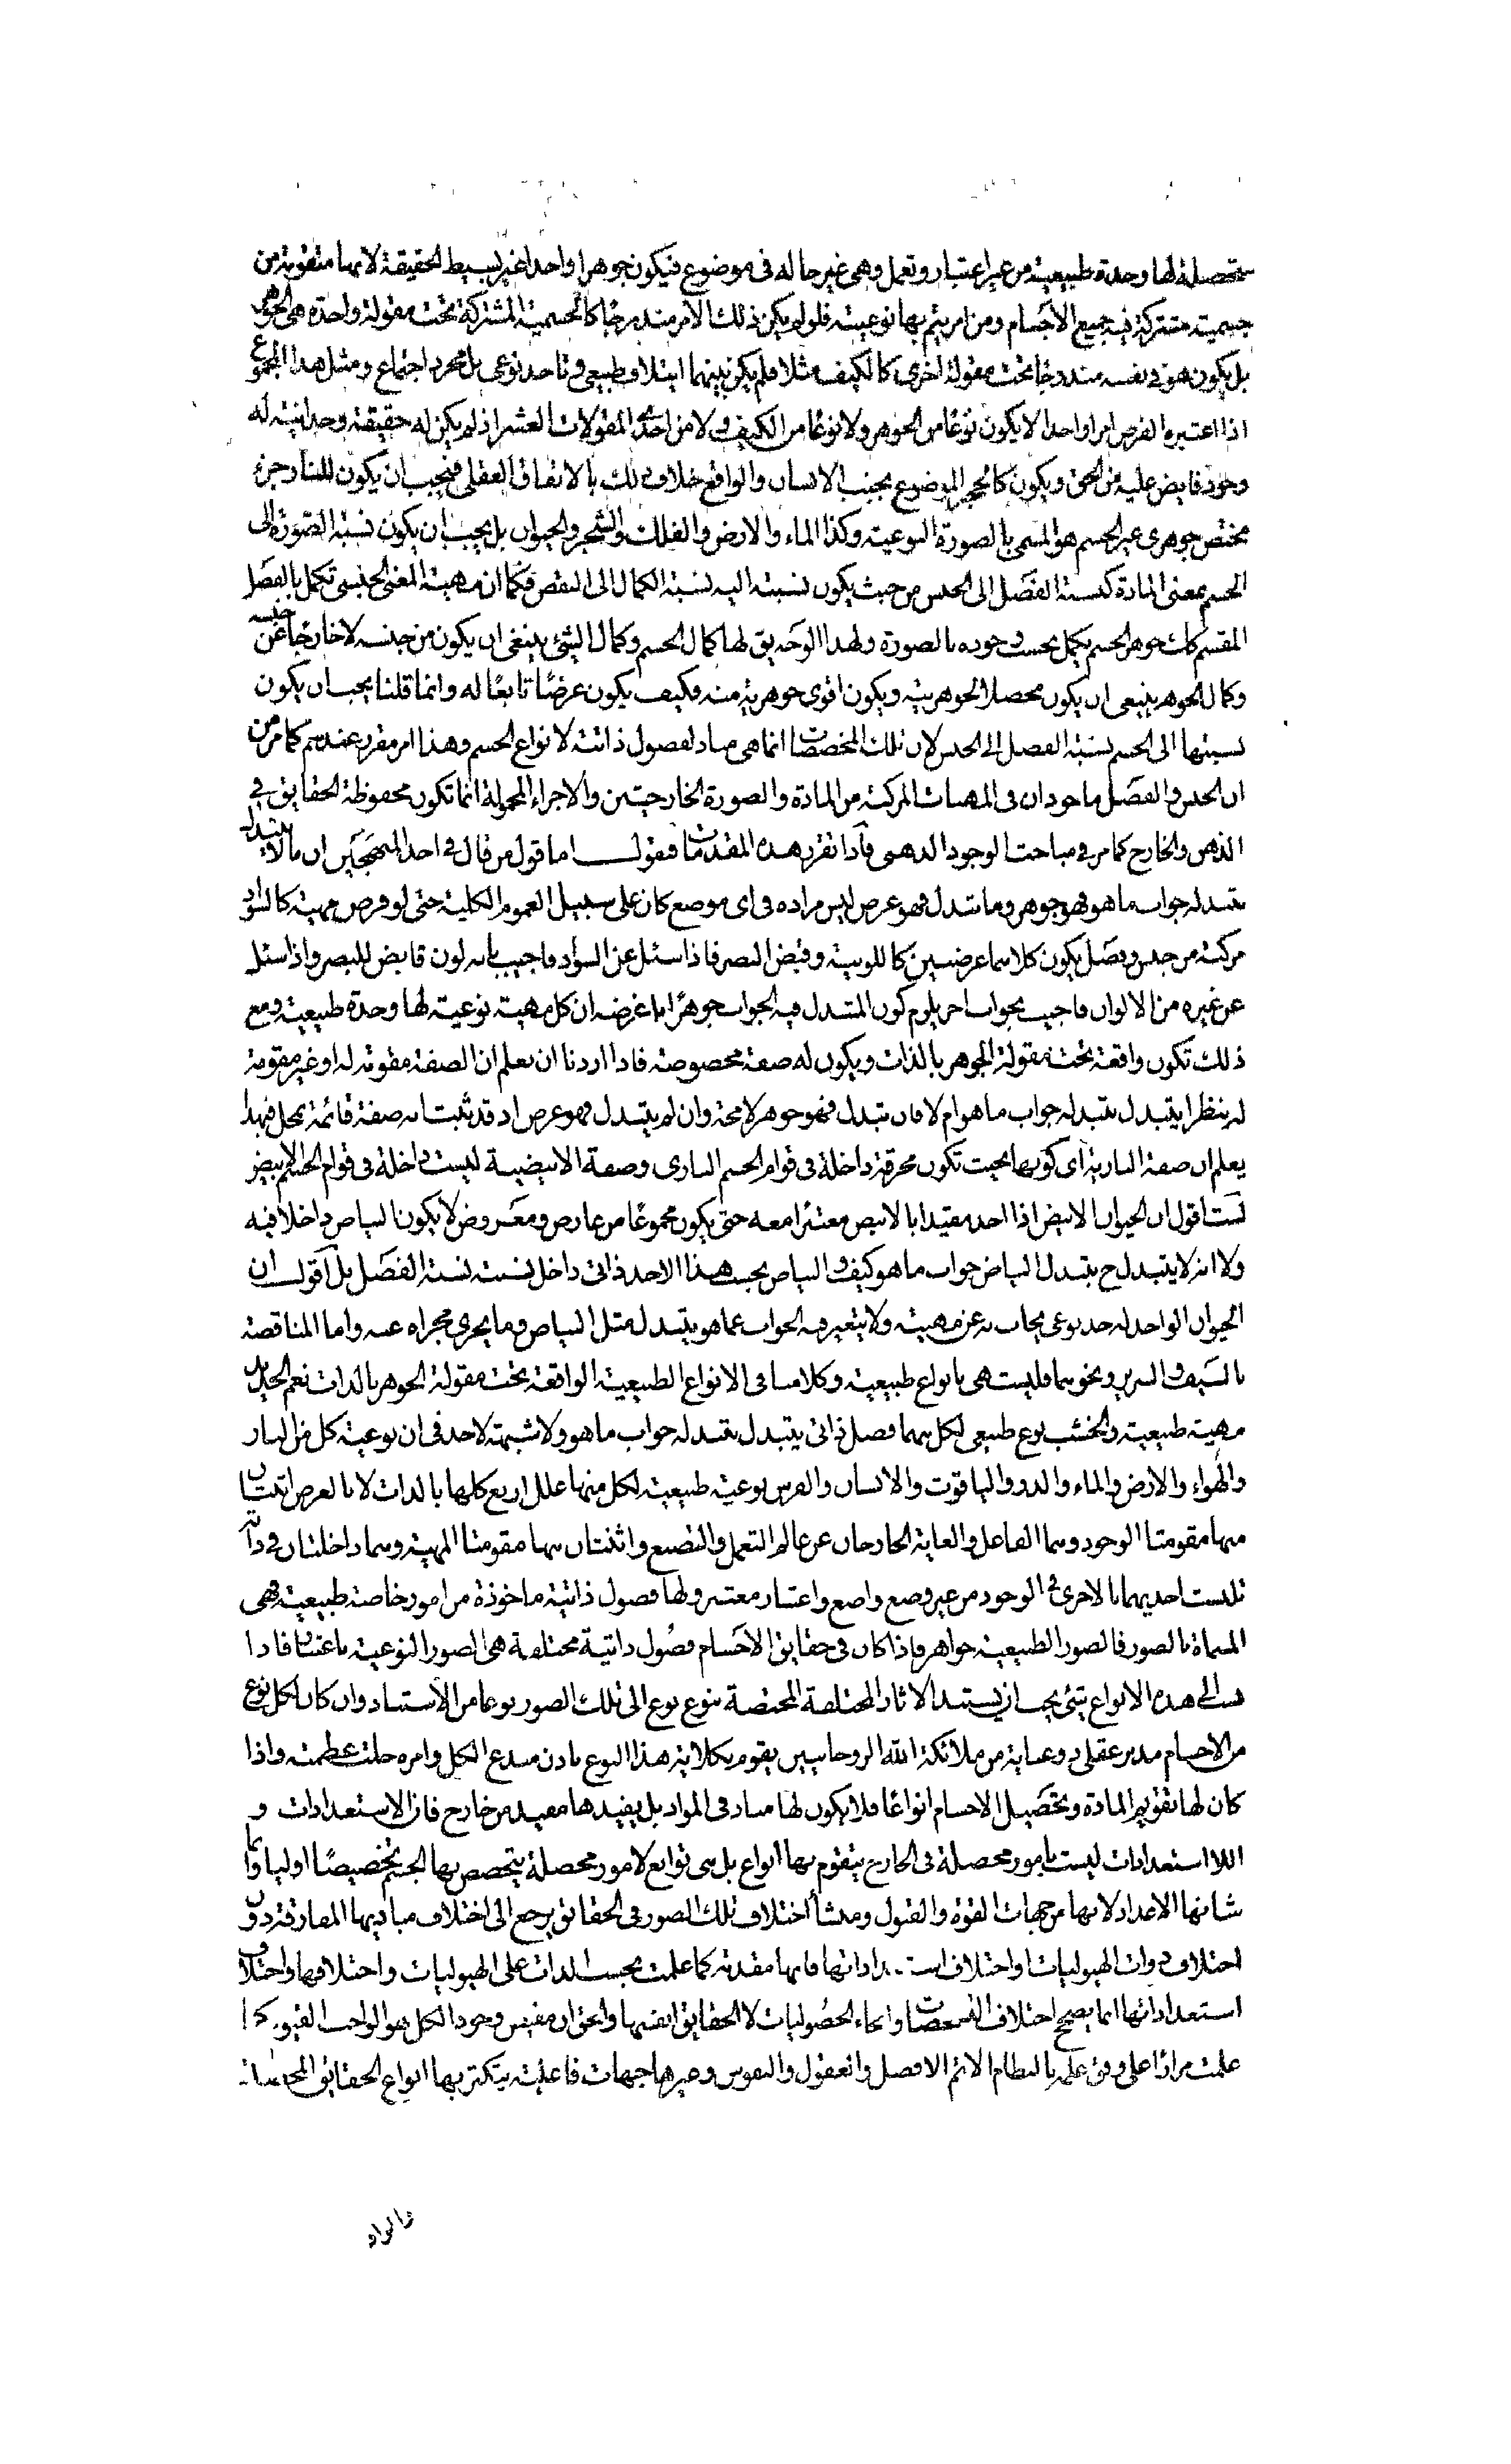 متحصلة لها وحدة طبيعية من غير اعتبار وتعمل وهى غير حالة فى موضوع فيكون جوهرا واحدا غير بسيط الحقيقة لانها متقومة من
جسمية مشتركة فيه جميع الاجسام ومن امر يتم بها نوعيته فلو لم يكن ذلك الامر مندرجا كالجسمية المشتركة تحت مقولة واحدة هى الجوهر
بل يكون هو فى نفسه مندرجا تحت مقولة اخرى كالكيف مثلا فلم يكن بينهما ايتلاف طبيعى وتاحد نوعى بل مجرد اجتماع ومثل هذا المجموع
اذا اعتبره الفرض امرا واحدا لا يكون نوعا من الجوهر ولا نوعا من الكيف ولا من احدى المقولات العشر اذ لم يكن له حقيقة وحدانية له
وجود فايض عليه من الحق ويكون كالحجر الموضوع بجنب الانسان والواقع خلاف ذلك بالاتفاق العقلى فيجب ان يكون للنار جزء
مختص جوهرى غير الجسم هو المسمى بالصورة النوعية وكذا الماء والارض والفلك والشجر والحيوان بل يجب ان يكون نسبة الصورة الى
الجسم بمعنى المادة كنسبة الفصل الى الجنس من حيث يكون نسبته اليه نسبة الكمال الى النقص فكما ان مهية المعنى الجنسى تكمل بالفصل
المقسم كك جوهر الجسم يكمل بحسب وجوده بالصورة ولهذا الوجه يق لها كمال الجسم وكمال الشئ ينبغى ان يكون من جنسه لا خارجا عن جنسه
وكمال الجوهر ينبغى ان يكون محصلا لجوهريته ويكون اقوى جوهرية منه فكيف يكون عرضا تابعا له وانما قلنا يجب ان يكون
نسبتها الى الجسم نسبة الفصل الى الجنس لان تلك المخصصات انما هى مباد لفصول ذاتية لانواع الجسم وهذا امر مقرر عندهم كما مر من
ان الجنس والفصل ماخوذان فى المهيات المركبة من المادة والصورة الخارجيتين والاجزاء المحمولة انما تكون محفوظة الحقايق فى
الذهن والخارج كما مر فى مباحث الوجود الذهنى فاذا تقرر هذه المقدمات فنقول اما قول من قال فى احد المنهجين ان ما لا يتبدل
بتبدله جواب ما هو فهو جوهر وما تبدل فهو عرض ليس مراده فى اى موضع كان على سبيل العموم الكلية حتى لو فرض مهية كالسواد
مركبة من جنس وفصل يكون كلاهما عرضيين كاللونية وقبض البصر فاذا سئل عن السواد فاجيب بانه لون قابض للبصر واذا سئل
عن غيره من الالوان فاجيب بجواب اخر يلزم كون المتبدل فيه الجواب جوهرا بل غرضه ان كل مهية نوعية لها وحدة طبيعية ومع
ذلك تكون واقعة تحت مقولة الجوهر بالذات ويكون له صفة مخصوصة فاذا اردنا ان نعلم ان الصفة مقومة له او غير مقومة
له ينظر ايتبدل بتبدله جواب ما هو ام لا فان تبدل فهو جوهر لا محة وان لم يتبدل فهو عرض اذ قد ثبت انه صفة قائمة بمحل فبهذا
يعلم ان صفة النارية اى كونها بحيث تكون محرقة داخلة فى قوام الجسم النارى وصفة الابيضية ليست داخلة فى قوام الجسم الابيض
لست اقول ان الحيوان الابيض اذا احد مقيدا بالابيض معتبرا معه حتى يكون مجموعا من عارض ومعروض لا يكون البياض داخلا فيه
ولا انه لا يتبدل ح بتبدل البياض جواب ما هو كيف والبياض بحسب هذا الاحد ذاتى داخل نسبته نسبة الفصل بل اقول ان
الحيوان الواحد له حد نوعى يجاب به عن مهيته ولا يتغير فيه الجواب عما هو بتبدل مثل البياض وما يجرى مجراه عنه واما المناقضة
بالسيف والسرير ونحوهما فليست هى بانواع طبيعية وكلامنا فى الانواع الطبيعية الواقعة تحت مقولة الجوهر بالذات نعم الحديد
مهية طبيعية والخشب نوع طبيعى لكل منهما فصل ذاتى يتبدل بتبدله جواب ما هو ولا شبهة لاحد فى ان نوعية كل من النار
والهواء والارض والماء والدر والياقوت والانسان والفرس نوعية طبيعية لكل منها علل اربع كلها بالذات لا بالعرض اثنتان
منها مقومتا الوجود وهما الفاعل والغاية الخارجان عن عالم التعمل والتصنع واثنتان منها مقومتا المهية وهما داخلتان فى ذاته
تلبست احديهما بالاخرى فى الوجود من غير وضع واضع واعتبار معتبر ولها فصول ذاتية ماخوذة من امور خاصة طبيعية فهى
المسماة بالصور فالصور الطبيعية جواهر فاذا كان فى حقايق الاجسام فصول ذاتية مختلفة هى الصور النوعية باعتبار فاذا
نسب الى هذه الانواع شئ يجب ان يستند الاثار المختلفة المختصة بنوع نوع الى تلك الصور نوعا من الاستناد وان كان لكل نوع
من الاجسام مدبر عقلى ذو عناية من ملائكة الله الروحانيين يقوم بكلاية هذا النوع باذن مبدع الكل وامره جلت عظمته واذا
كان لها تقويم المادة وتحصيل الاجسام انواعا فلا يكون لها مباد فى المواد بل يفيدها مفيد من خارج فان الاستعدادات و
اللااستعدادات ليست بامور محصلة فى الخارج يتقوم بها انواع بل هى توابع لامور محصلة يتخصص بها الجسم تخصيصا اوليا وانما
شانها الاعداد لانها من جهات القوة والقبول ومنشأ اختلاف تلك الصور فى الحقائق يرجع الى اختلاف مباديها المفارقة دون
اختلاف ذوات الهيوليات او اختلاف استعداداتها فانها مقدمة كما علمت بحسب الذات على الهيوليات واختلافها واختلاف
استعداداتها انما يصحح اختلاف التشخصات وانحاء الحصوليات لا الحقايق انفسها والحق ان مفيض وجود الكل هو الواجب القيوم كما
علمت مرارا على وفق علمه بالنظام الاتم الافضل والعقول والنفوس وغيرها جهات فاعلية يتكثر بها انواع الحقائق المحصلة